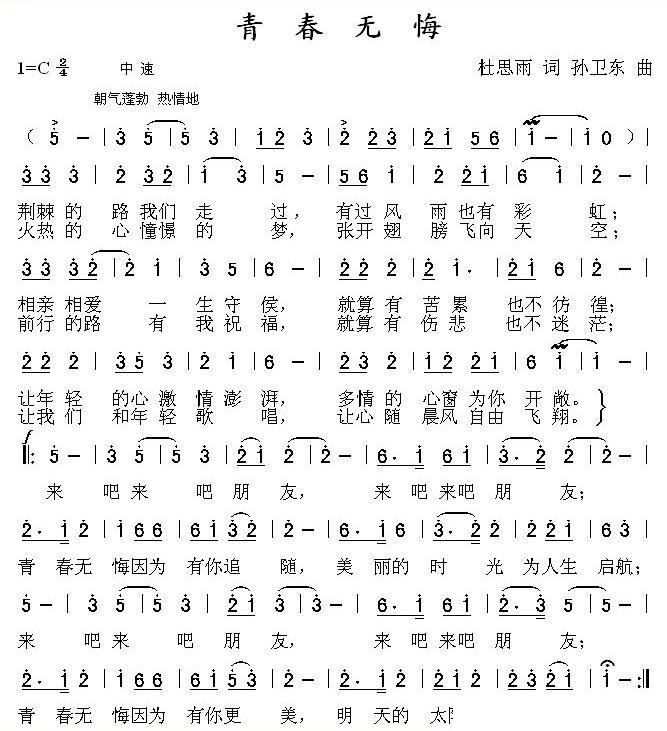 青 春 无 悔
1=C 2/4 中 速 杜思雨 词 孙卫东 曲
朝气蓬勃 热情地
( 5 - | 3 5 | 5 3 | 1 2 3 | 2 2 3 | 2 1 5 6 | 1 - | 1 0 ) |
3 3 3 | 2 3 2 | 1 3 | 5 - | 5 6 1 | 2 2 1 | 6 1 | 2 - |
荆棘 的 路 我们 走 过， 有过 风 雨 也有 彩 虹；
火热 的 心 憧憬 的 梦， 张开 翅 膀 飞向 天 空；
3 3 3 2 | 2 1 | 3 5 | 6 - | 2 2 2 | 2 1 · | 1 2 5 | 6 - |
相亲 相爱 一 生 守 侯， 就算 有 苦 累 也不 彷 徨；
前行 的路 有 我 祝 福， 就算 有 伤 悲 也不 迷 茫；
2 2 2 | 3 5 3 | 2 1 2 | 6 - | 2 3 2 | 1 2 2 1 | 6 1 | 1 - |
让年 轻 的心 激 情 澎 湃， 多情 的 心窗 为你 开 敞。
让我 们 和年 轻 歌 唱， 让心 随 晨风 自由 飞 翔。
‖: 5 - | 3 5 | 5 3 | 2 1 2 | 2 - | 6 · 1 6 | 3 · 2 | 2 - |
来 吧 来 吧 朋 友， 来 吧 来吧 朋 友；
2 · 1 2 | 1 6 6 | 6 1 3 2 | 2 - | 6 · 1 6 | 3 2 | 2 1 2 1 | 6 3 |
青 春无 悔因为 有你追 随， 美 丽的 时 光 为人生 启航；
5 - | 3 5 | 5 3 | 2 1 3 | 3 - | 6 · 1 6 | 2 · 3 | 5 - |
来 吧 来 吧 朋 友， 来 吧 来吧 朋 友；
2 · 1 2 | 1 6 6 | 6 1 2 3 | 2 - | 2 · 1 2 | 5 3 | 2 1 2 3 | 1 - :‖
青 春无 悔因为 有你更 美， 明 天的 太